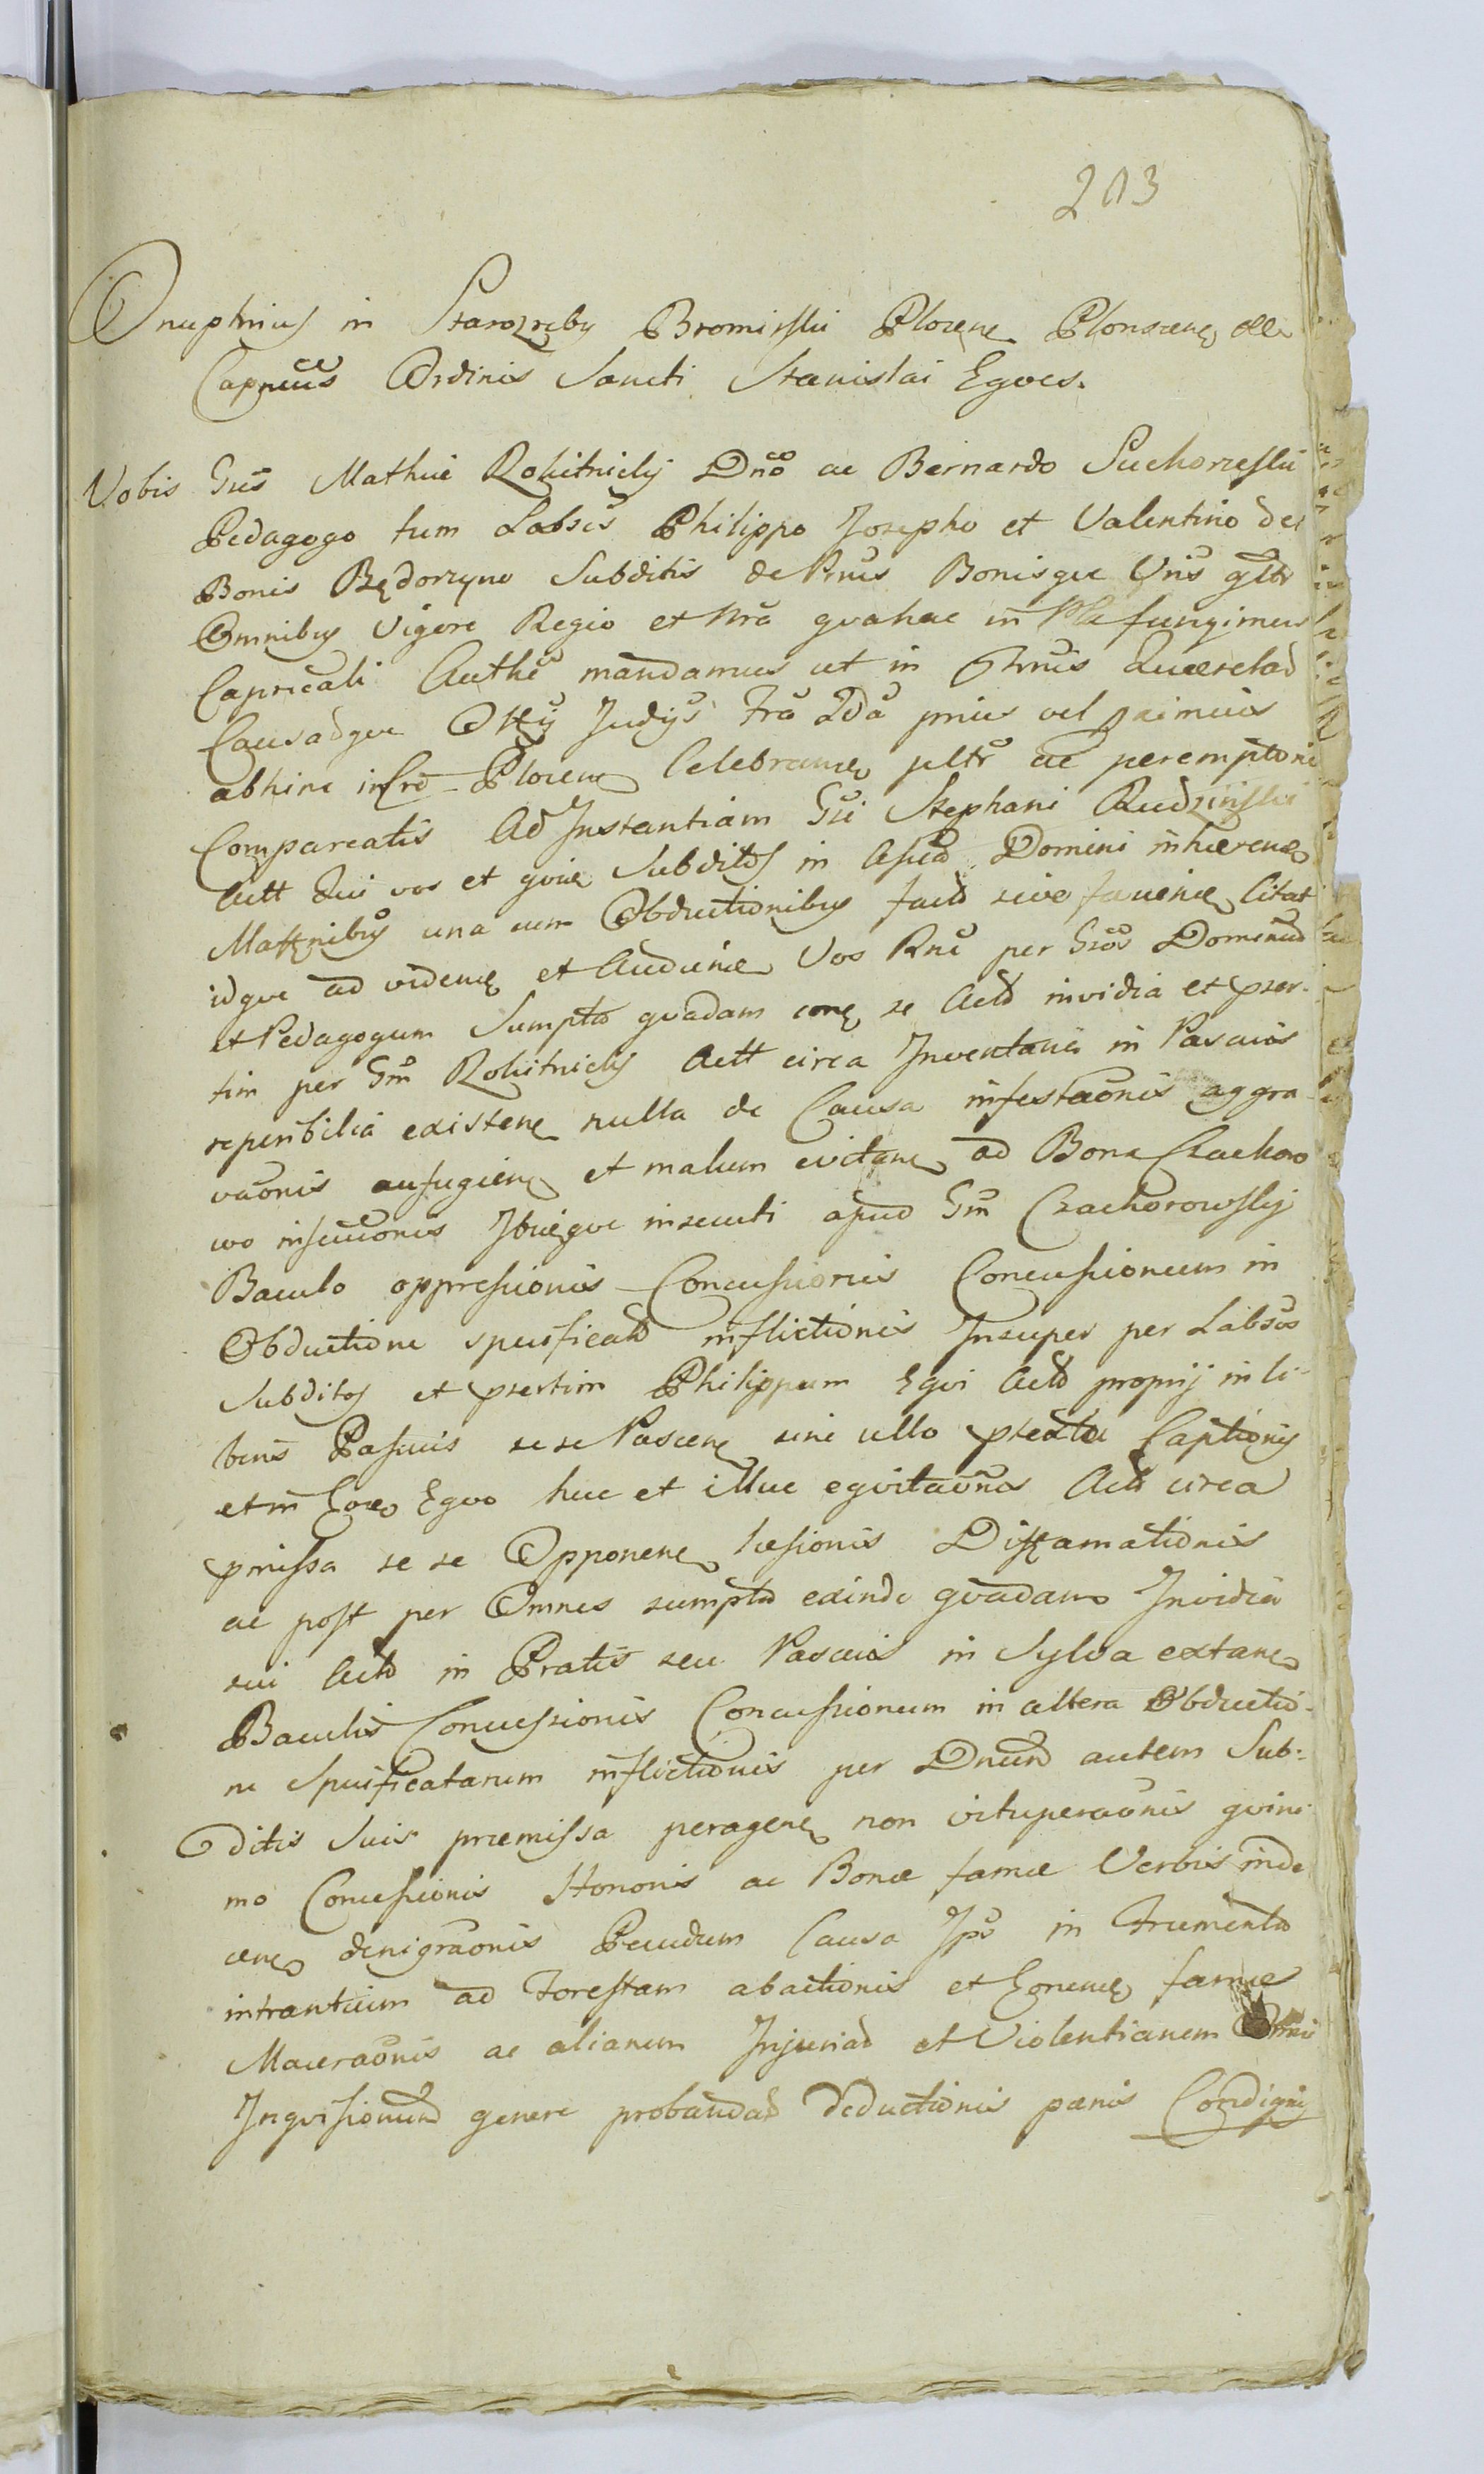 203
Onuphrius in Starozreby Bromirski Plocen Plonscen etc
Capneus Ordinis Sancti Stanislai Eques.
Vobis Gsis Mathie Rokitnicky Dno ac Bernardo Suchorzeski
Pedagogo tum Labsis Philippo Josepho et Valentino de
Bonis Będorzyno Subditis de Prnis Bonisque Vris gltr
Omnibus Vigore Regio et Nra qua hac in Pte fungimur
Capneali Authe mandamus ut in Termis Querelad
Causadque Offij Judijs Fra 2da prius vel primius
abhinc in Cro Plocen Celebrane pltr ac peremptorie
Compareatis Ad Instantiam Gsi Stephani Rudzinski
Actt Qui vos et qvine Subditos in Assia Domini inhærene
Mattnibus una cum Obductionibus facto sive faciene Citat
idque ad videne et Audiene Vos Rne per Gsos Dominud
et Pedagogum Sumpta quadam cone se Acto invidia et præser-
tim per Gm Rokitnicky Actt circa Inventaris in Pascuis
reperibilia existene nulla de Causa infestaonis aggra-
vaonis aufugiene et malum evitane ad Bona Czachoro
wo insecuonis Ibique insecuti apud Gm Czachorowsky
Baculo oppressionis Concussionis Concussionum in
Obductione specificato inflictionis Insuper per Labsos
Subditos et præsertim Philippum Equi Acto proprij in li-
beris Pascuis se se Pascene sine ullo prætextu Captionis
et in Eoe Equo huc et illuc equitaonis Acto circa
præmissa se se Opponene læsionis Diffamationis
ac post per Omnes sumpta exinde quadam Invidia
sui Acto in Pratis seu Pascuis in Sylva extane
Baculis Concussionis Concussionum in altera Obductio-
ne Specificatarum inflictionis per Dnum autem Sub-
ditis Suis præmissa peragene non vituperaonis qvini
mo Concussionis Honoris ac Bonæ famæ Verbis inde
cene denigraonis Pecudum Causa Ips in Frumenta
intrantium ad Forestam abactionis et Eorune fame
Maceraonis ac aliarum Injuriad et Violentiarum Omni
Inquisionum genere probandad deductionis pœnis Condignis